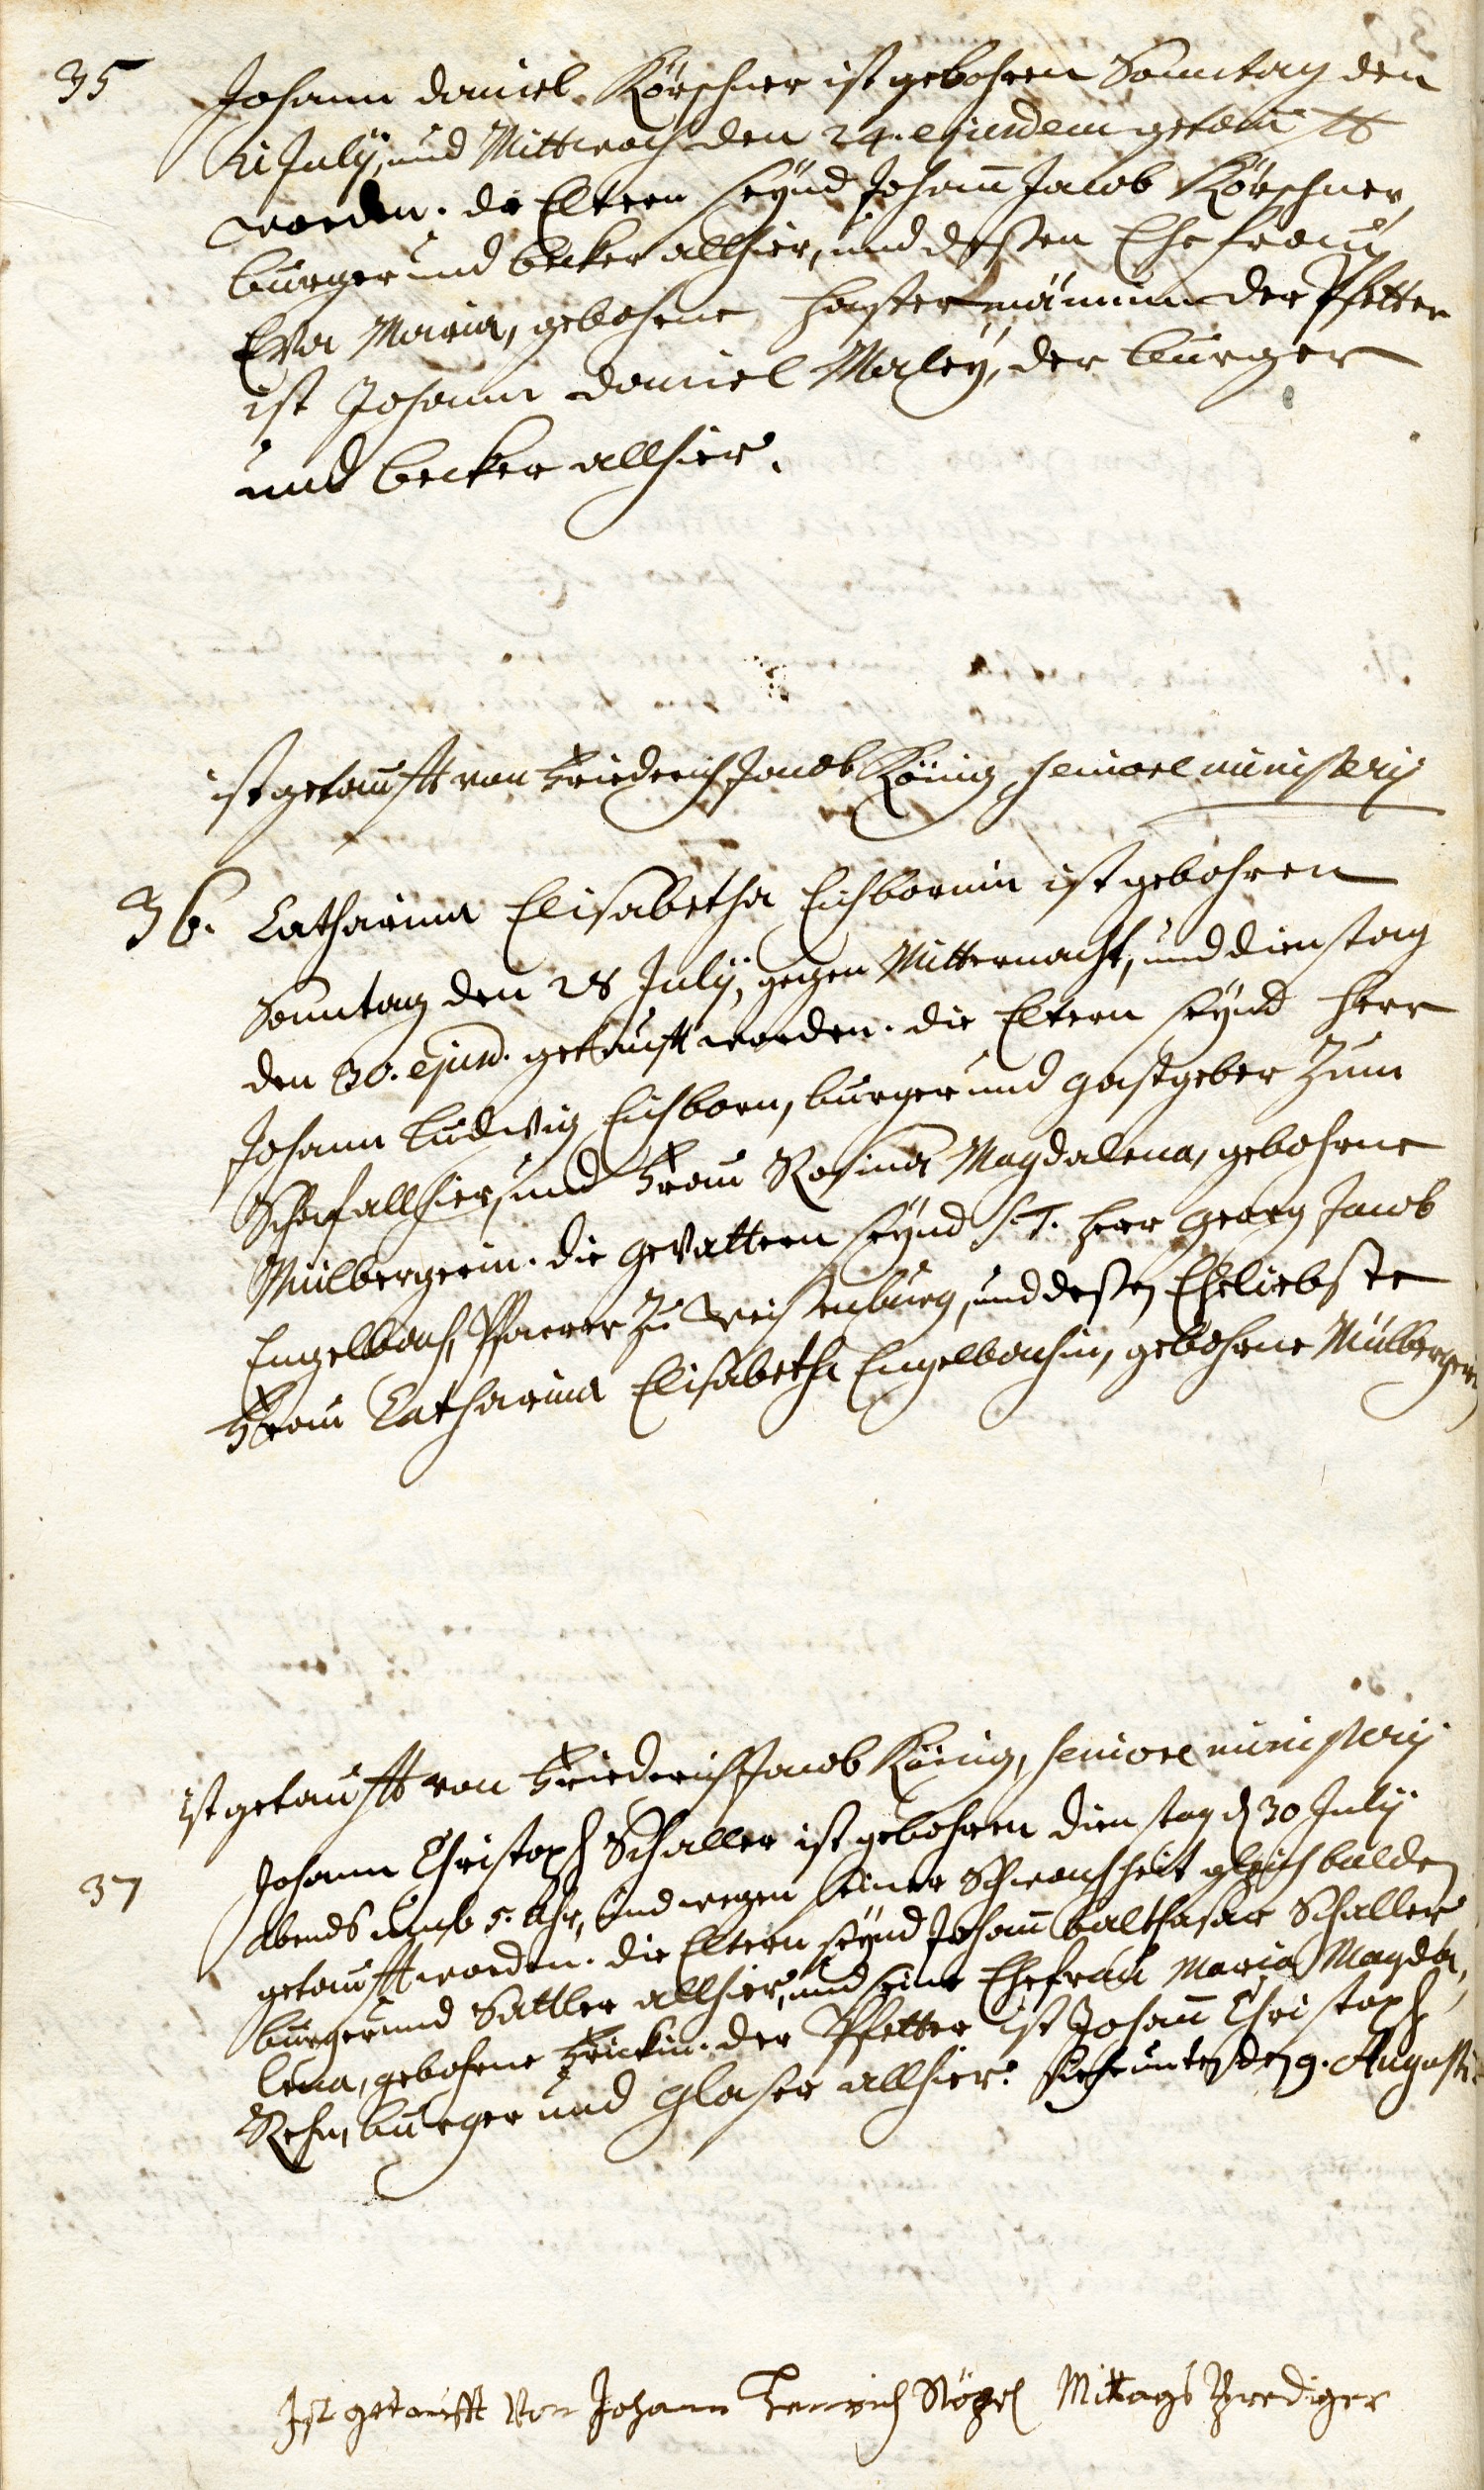 35 Johann Daniel Körschner ist gebohren Sonntag den
21 Julÿ, und Mittwoch den 24. ejusdem getaufft
worden. die Eltern seÿnd Johann Jacob Körschner,
burger und becker allhier, und deßen Ehefrau
Eva Maria, gebohrne der Pfetter
ist Johann Daniel Maleÿ, der burger
und becker allhier.
ist getaufft von Friederich Jacob König, seniore ministerij
36. Catharina Elisabetha Eichbornin ist gebohren
Sonntag den 28 Julÿ, gegen Mitternacht, und dienstag
den 30. ejusd. getaufft worden. die Eltern seÿnd Herr
Johann Ludwig Eichborn, burger und gastgeber zum
Schaf allhier, und Frau Rosina Magdalena, gebohrne
Mülbergerin. die gevattern seÿnd S.T. Herr Georg Jacob
Engelbach, Pfarrer zu Weißenburg, und deßen Eheliebste
Frau Catharina Elisabetha Engelbachin, gebohrne Mülbergerin
ist getaufft von Friederich Jacob König, seniore ministerij
37 Johann Christoph Schaller ist gebohren dienstag d. 30 Julij
abends umb 5. Uhr, und wegen seiner Schwachheit gleich balden
getaufft worden. die Eltern seÿnd Johann balthasar Schaller,
burger und Sattler allhier, und seine Ehefrau Maria Magda,
lena, gebohrne Frickin. der Pfetter ist Johann Christoph
Rehm, burger und glaser allhier. siehe unten den 9. Augusti.
Ist getaufft Von Johann Henrich Mittags Prediger